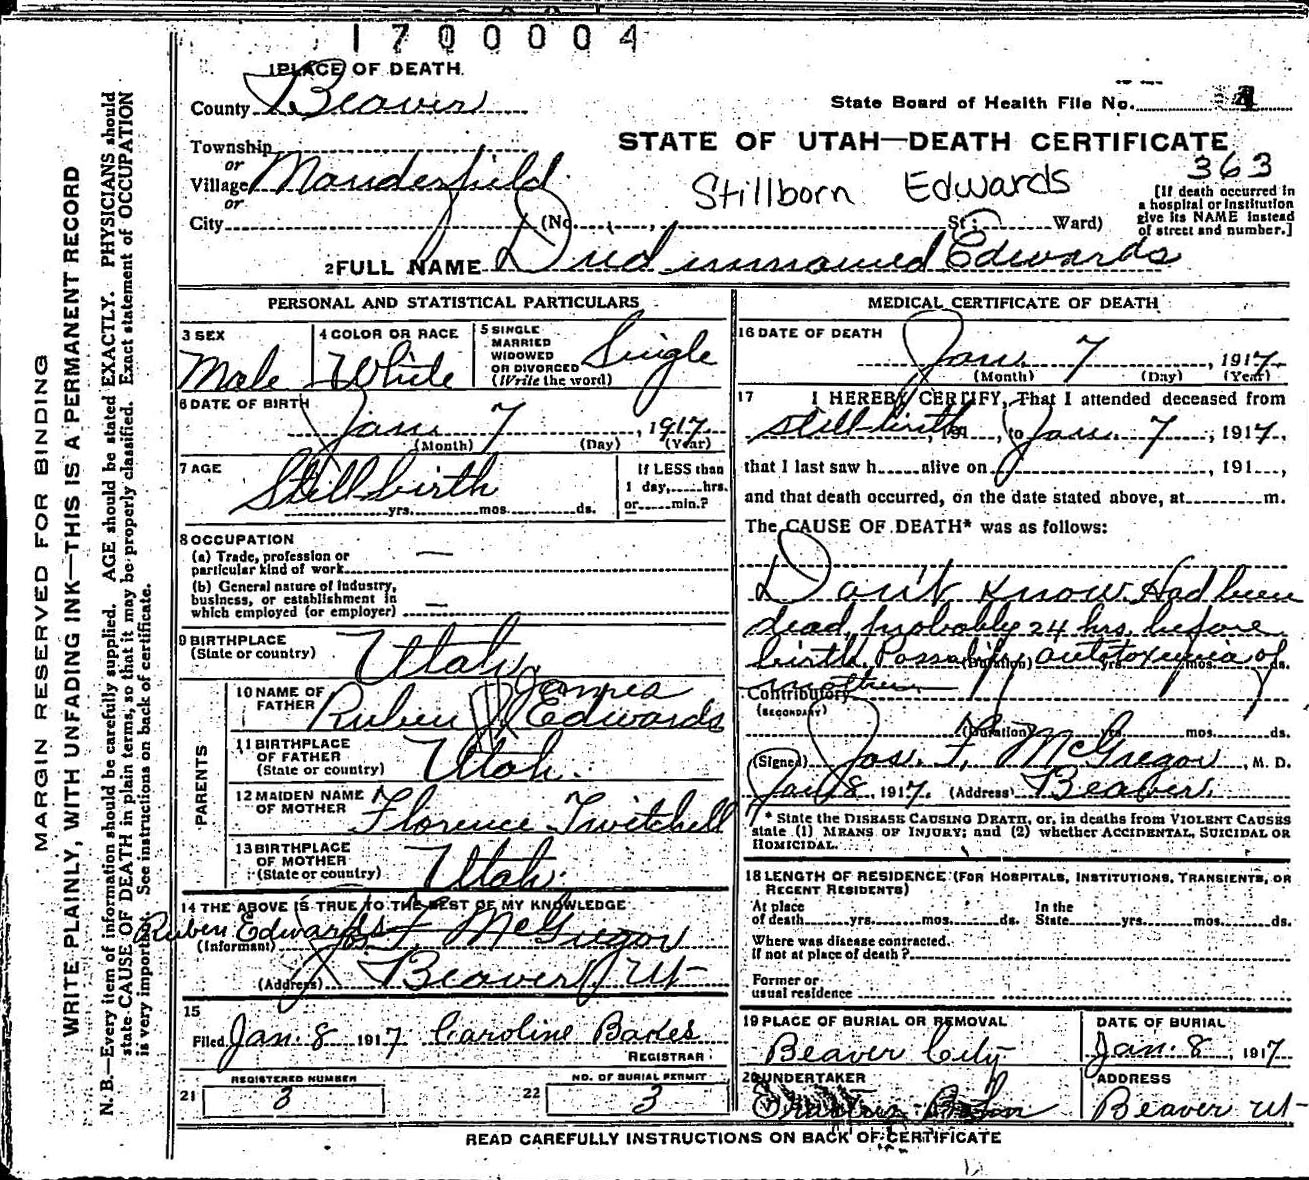 1700004
1 PLACE OF DEATH
County Beaver
State Board of Health File No.
STATE OF UTAH—DEATH CERTIFICATE
363
Township
or
Village Manderfield
or
City (No. , St.; Ward)
Stillborn Edwards
[If death occurred in
a hospital or institution
give its NAME instead
of street and number.]
2 FULL NAME Died unnamed Edwards
PERSONAL AND STATISTICAL PARTICULARS
3 SEX
Male
4 COLOR OR RACE
White
5 SINGLE
MARRIED
WIDOWED
OR DIVORCED
(Write the word)
Single
6 DATE OF BIRTH
Jan. 7, 1917
(Month) (Day) (Year)
7 AGE
Stillbirth
yrs. mos. ds.
If LESS than
1 day, hrs.
or min.?
8 OCCUPATION
(a) Trade, profession or
particular kind of work —
(b) General nature of industry,
business, or establishment in
which employed (or employer) —
9 BIRTHPLACE
(State or country)
Utah
PARENTS
10 NAME OF
FATHER
Ruben Edwards
11 BIRTHPLACE
OF FATHER
(State or country)
Utah.
12 MAIDEN NAME
OF MOTHER
Florence Twitchell
13 BIRTHPLACE
OF MOTHER
(State or country)
Utah.
14 THE ABOVE IS TRUE TO THE BEST OF MY KNOWLEDGE
Ruben Edwards
(Informant) Jos F McGregor
(Address) Beaver Ut-
15
Filed Jan. 8 1917 Caroline Bakes
REGISTRAR
REGISTERED NUMBER
21 3
NO. OF BURIAL PERMIT
22 3
MEDICAL CERTIFICATE OF DEATH
16 DATE OF DEATH
Jan. 7, 1917.
(Month) (Day) (Year)
17 I HEREBY CERTIFY, That I attended deceased from
Stillbirth, 191 , to Jan. 7, 1917,
that I last saw h alive on , 191 ,
and that death occurred, on the date stated above, at m.
The CAUSE OF DEATH* was as follows:
Don't know. Had been
dead, probably 24 hrs. before
birth. Possibly autotoxemia of
mother.
(Duration) yrs. mos. ds.
Contributory
(SECONDARY)
(Duration) yrs. mos. ds.
(Signed) Jos. F. McGregor, M. D.
Jan 8, 1917. (Address) Beaver.
* State the DISEASE CAUSING DEATH, or, in deaths from VIOLENT CAUSES
state (1) MEANS OF INJURY; and (2) whether ACCIDENTAL, SUICIDAL OR
HOMICIDAL.
18 LENGTH OF RESIDENCE (FOR HOSPITALS, INSTITUTIONS, TRANSIENTS, OR
RECENT RESIDENTS)
At place
of death yrs. mos. ds.
In the
State yrs. mos. ds.
Where was disease contracted.
if not at place of death?
Former or
usual residence
19 PLACE OF BURIAL OR REMOVAL
Beaver City
DATE OF BURIAL
Jan. 8, 1917
20 UNDERTAKER
ADDRESS
Beaver Ut-
READ CAREFULLY INSTRUCTIONS ON BACK OF CERTIFICATE
MARGIN RESERVED FOR BINDING
WRITE PLAINLY, WITH UNFADING INK—THIS IS A PERMANENT RECORD
N. B.—Every item of information should be carefully supplied. AGE should be stated EXACTLY. PHYSICIANS should
state CAUSE OF DEATH in plain terms, so that it may be properly classified. Exact statement of OCCUPATION
is very important. See instructions on back of certificate.